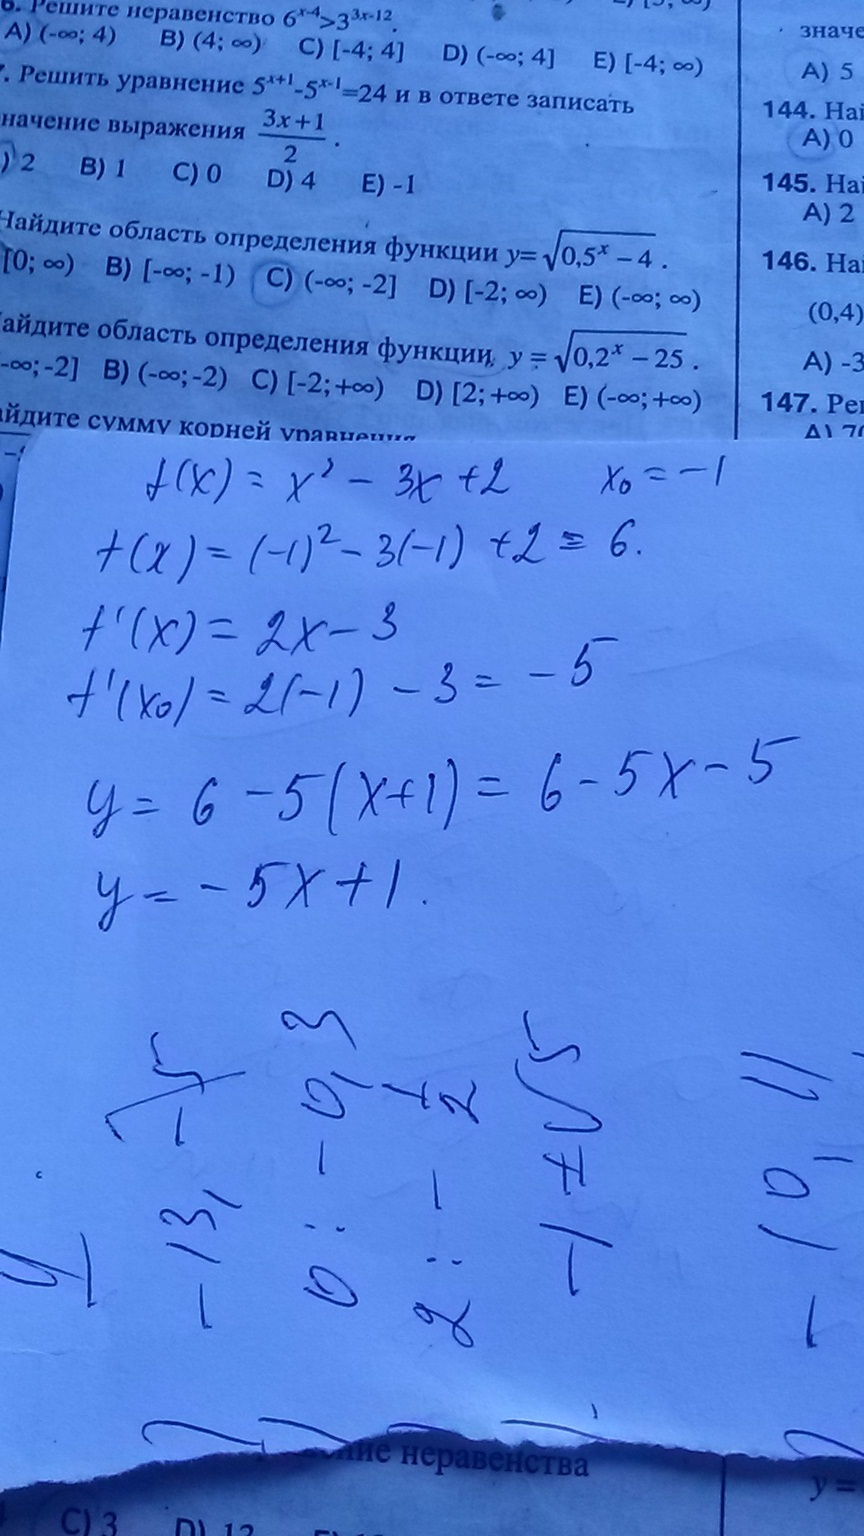 6. Решите неравенство 6^{x-4}>3^{3x-12}.
A) (-∞; 4) B) (4; ∞) C) [-4; 4] D) (-∞; 4] E) [-4; ∞)
7. Решить уравнение 5^{x+1}-5^{x-1}=24 и в ответе записать
значение выражения \frac{3x+1}{2}.
) 2 B) 1 C) 0 D) 4 E) -1
Найдите область определения функции y=√(0,5^x – 4).
[0; ∞) B) [-∞; -1) C) (-∞; -2] D) [-2; ∞) E) (-∞; ∞)
айдите область определения функции y = √(0,2^x – 25).
-∞; -2] B) (-∞; -2) C) [-2; +∞) D) [2; +∞) E) (-∞; +∞)
айдите сумму корней уравнения
значе
A) 5
144. Най
A) 0
145. На
A) 2
146. На
(0,4)
A) -3
147. Ре
f(x) = x² - 3x + 2 x₀ = -1
f(x) = (-1)² - 3(-1) + 2 = 6.
f'(x) = 2x - 3
f'(x₀) = 2(-1) - 3 = -5
y = 6 - 5(x+1) = 6 - 5x - 5
y = -5x + 1.
неравенства
y =
C) 3 D) 12